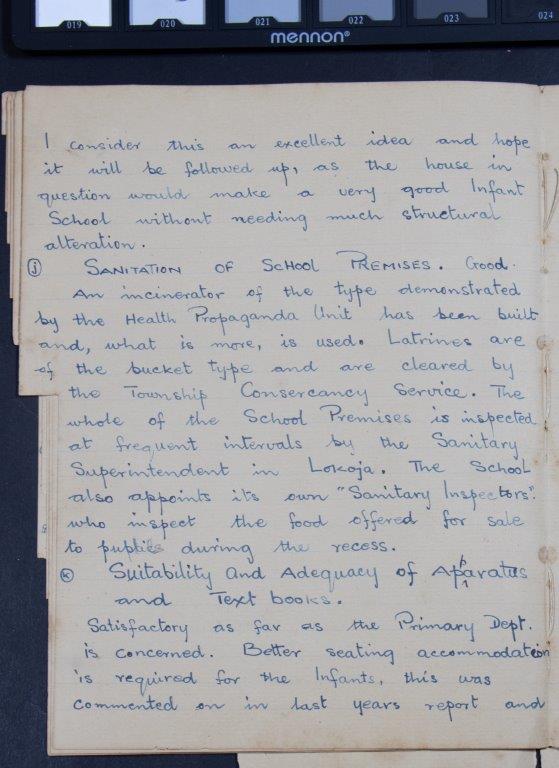 019 020 021 022 023 024
mennon®
I consider this an excellent idea and hope
it will be followed up, as the house in
question would make a very good Infant
School without needing much structural
alteration.
(j) SANITATION OF SCHOOL PREMISES. Good.
An incinerator of the type demonstrated
by the Health Propaganda Unit has been built
and, what is more, is used. Latrines are
of the bucket type and are cleared by
the Township Conservancy Service. The
whole of the School Premises is inspected
at frequent intervals by the Sanitary
Superintendent in Lokoja. The School
also appoints its own "Sanitary Inspectors".
who inspect the food offered for sale
to pupils during the recess.
(k) Suitability and Adequacy of Apparatus
and Text books.
Satisfactory as far as the Primary Dept.
is concerned. Better seating accommodation
is required for the Infants, this was
commented on in last years report and